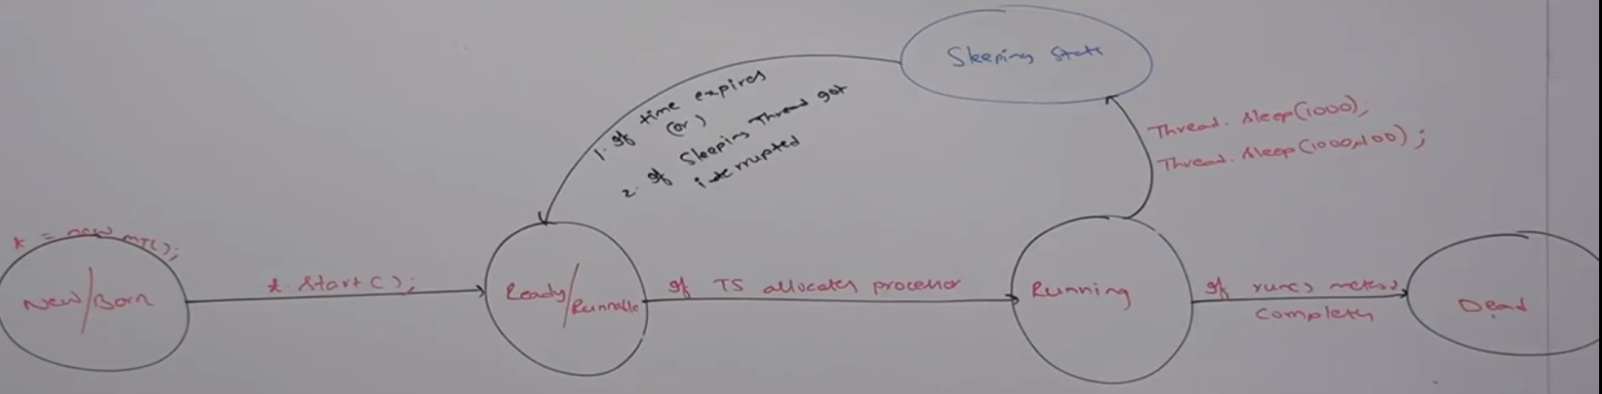 Sleeping State
1. If time expires
(or)
2. If Sleeping Thread got
interrupted
Thread.sleep(1000);
Thread.sleep(1000,100);
t = new MT();
New/Born
t.start();
Ready/
Runnable
If TS allocates processor
Running
If run() method
completes
Dead